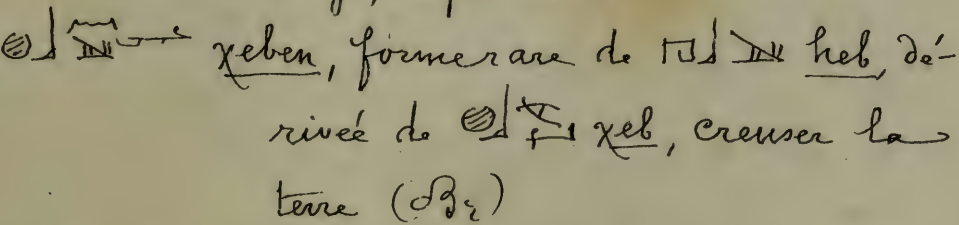 𓐍𓃀 χeben, forme rare de 𓉔𓃀𓍁 heb, dé-
rivée de 𓐍𓃀 χeb, creuser la
terre (Br)